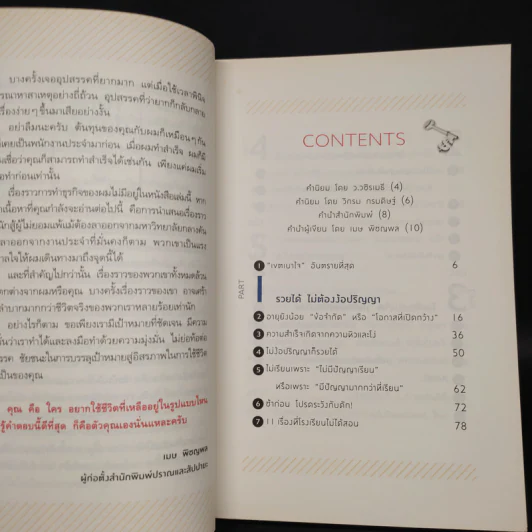 บางครั้งเจออุปสรรคที่ยากมาก แต่เมื่อใช้เวลาพินิจ
รณาหาสาเหตุอย่างถี่ถ้วน อุปสรรคที่ว่ายากก็กลับกลาย
รื่องง่ายๆ ขึ้นมาเสียอย่างงั้น
อย่าลืมนะครับ ต้นทุนของคุณกับผมก็เหมือนๆ กัน
เคยเป็นพนักงานประจำมาก่อน เมื่อผมทำสำเร็จ ผมก็มี
เชื่อว่าคุณก็สามารถทำสำเร็จได้เช่นกัน เพียงแค่ผมเริ่ม
ทำก่อนเท่านั้น
เรื่องราวการทำธุรกิจของผมไม่มีอยู่ในหนังสือเล่มนี้ หาก
เนื้อหาที่คุณกำลังจะอ่านต่อไปนี้ คือการนำเสนอเรื่องราว
นักสู้ผู้ไม่ยอมแพ้แม้ต้องลาออกจากมหาวิทยาลัยกลางคัน
ลาออกจากงานประจำที่มั่นคงก็ตาม พวกเขาเป็นแรง
าลใจให้ผมเดินทางมาถึงจุดนี้ได้
และที่สำคัญไปกว่านั้น เรื่องราวของพวกเขาทั้งหมดล้วน
ตกต่างจากผมหรือคุณ บางครั้งเรื่องราวของเขา อาจสร้าง
ลำบากมากกว่าชีวิตจริงของพวกเราหลายร้อยเท่านัก
อย่างไรก็ตาม ขอเพียงเรามีเป้าหมายที่ชัดเจน มีความ
ั่นว่าเราทำได้และลงมือทำด้วยความมุ่งมั่น ไม่ย่อท้อต่อ
รรค ชัยชนะในการบรรลุเป้าหมายสู่อิสรภาพในการใช้ชีวิต
เป็นของคุณ
คุณ คือ ใคร อยากใช้ชีวิตที่เหลืออยู่ในรูปแบบไหน
รู้คำตอบนี้ดีที่สุด ก็คือตัวคุณเองนั่นแหละครับ
เมษ พิชญพล
ผู้ก่อตั้งสำนักพิมพ์ปราณและสัปปายะ
CONTENTS
คำนิยม โดย ว.วชิรเมธี (4)
คำนิยม โดย วิกรม กรมดิษฐ์ (6)
คำนำสำนักพิมพ์ (8)
คำนำผู้เขียน โดย เมษ พิชญพล (10)
1 "เขตเบาใจ" อันตรายที่สุด 6
PART I รวยได้ ไม่ต้องง้อปริญญา
2 อายุยังน้อย "ข้อจำกัด" หรือ "โอกาสที่เปิดกว้าง" 16
3 ความสำเร็จเกิดจากความหิวและโง่ 36
4 ไม่ง้อปริญญาก็รวยได้ 50
5 ไม่เรียนเพราะ "ไม่มีปัญญาเรียน"
หรือเพราะ "มีปัญญามากกว่าที่เรียน" 62
6 ช้าก่อน โปรดระวังกับดัก! 72
7 11 เรื่องที่โรงเรียนไม่ได้สอน 78